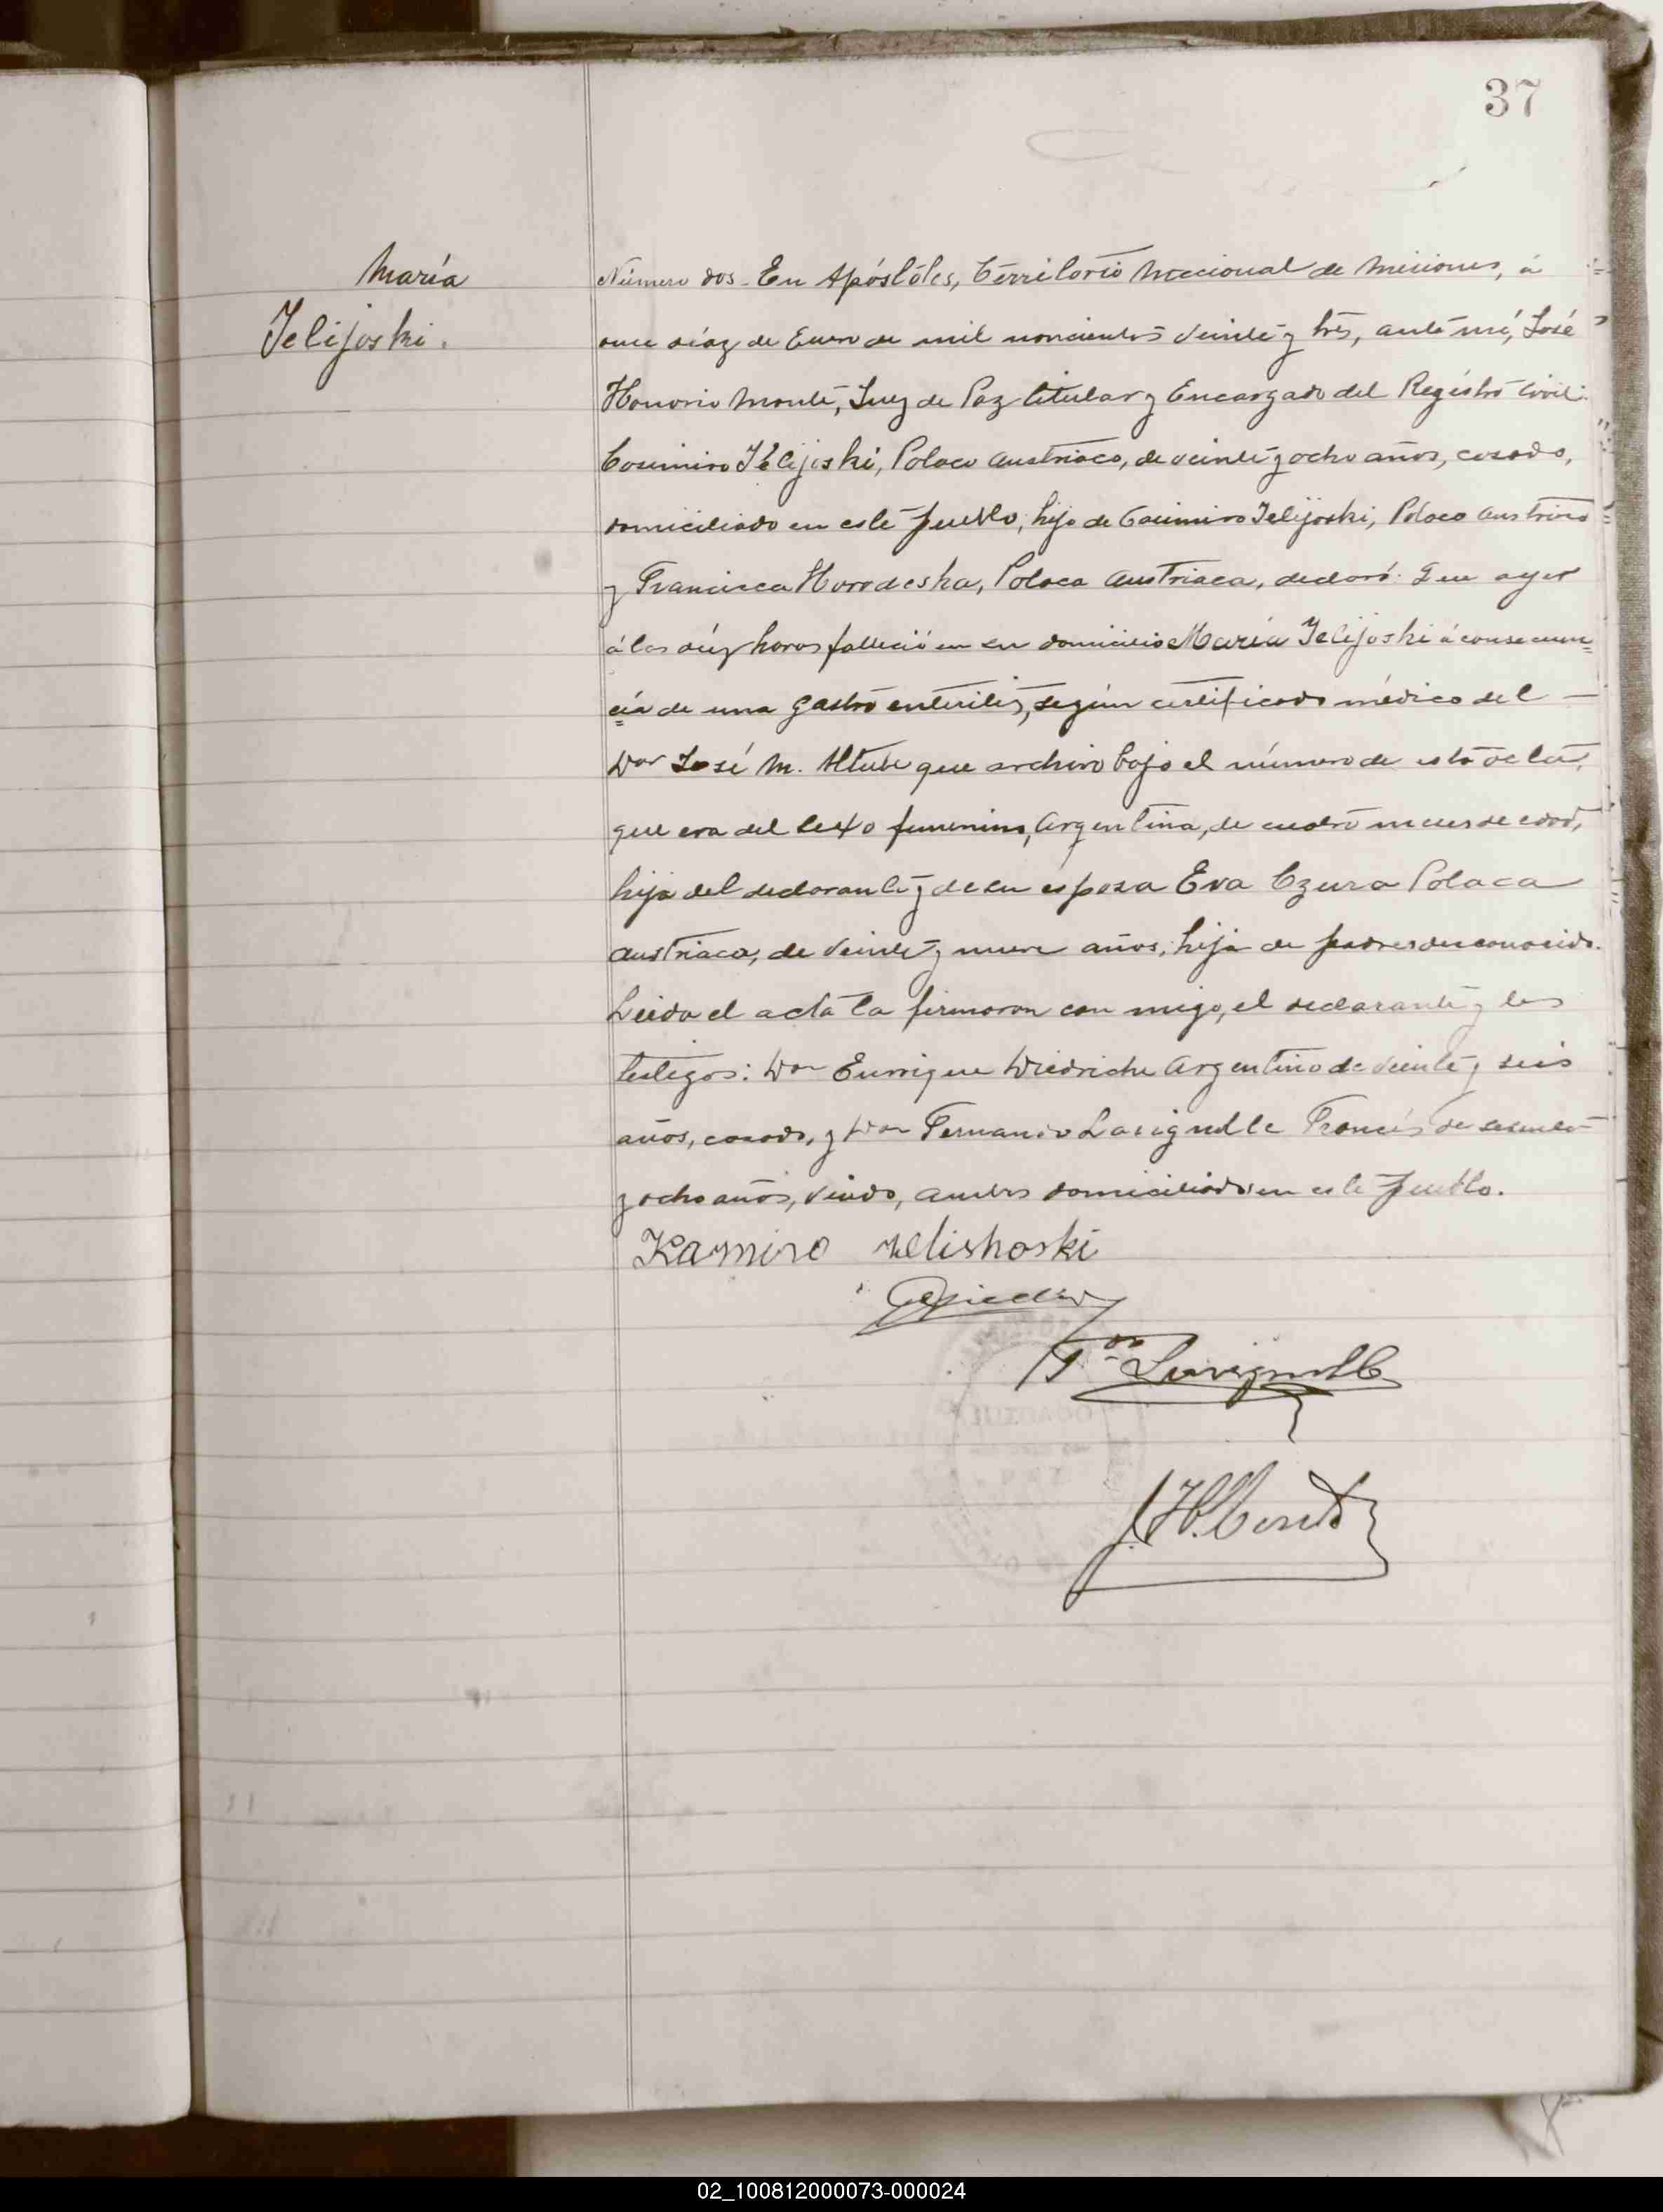 37
María
Jelijoski.
Número dos. En Apóstóles, Térritorio Nacional de Misiones, á
once díaz de Enero de mil novecientos veinte y trés, anté mí, José
Honorio Monte, Juez de Paz titular y Encargado del Registró Civil:
Casimiro Jelijoski, Polaco Austriaco, de veinte y ocho años, casado,
domiciliado en esté pueblo, hijo de Casimiro Jelijoski, Polaco Austriaco
y Francisca Horodeska, Polaca Austriaca, declaró: Que ayer
á las diéz horas falleció en su domicilio María Jelijoski á consecuen=
cia de una gastro enteritis, según certificado médico del —
Dor José M. Altube que archivo bajo el número de esta acta,
que era del sexo femenino, Argentina, de cuatro meses de edad,
hija del declarante y de su esposa Eva Czura Polaca
Austriaca, de veinte y nueve años, hija de padres desconocido.
Leída el acta la firmaron con migo, el declarante y los
testigos: Don Enrrique Diedriche Argentino de veinte y seis
años, casado, y Don Fernando Lavignolle Francés de sesenta
y ocho años, viudo, ambos domiciliados en este pueblo.
Kasmiro Zelishoski
Fdo Lavignolle
02_100812000073-000024